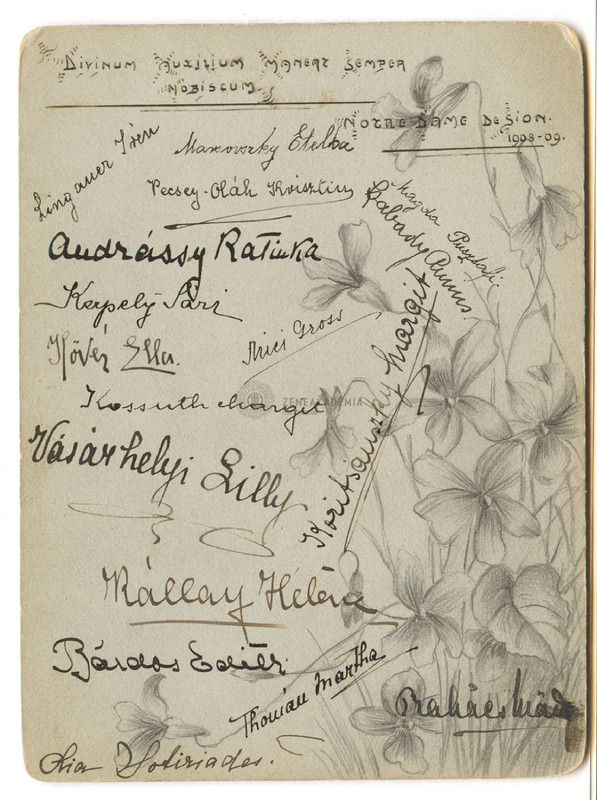 Divinum Auxilium Maneat Semper
Nobiscum.
Notre Dame De Sion.
1908-09.
Lingauer Irén
Manovszky Etelka
Pecsey-Oláh Krisztin
Magda Pusztafi
Andrássy Katinka
Kerpely Sári
Kövér Ella.
Mici Gross
Kossuth Margit
ZENEAKADÉMIA
Koritsánszky Margit
Vásárhelyi Lilly
Kállay Helén
Bárdos Edith
Thomán Martha
Lia Sotiriades.